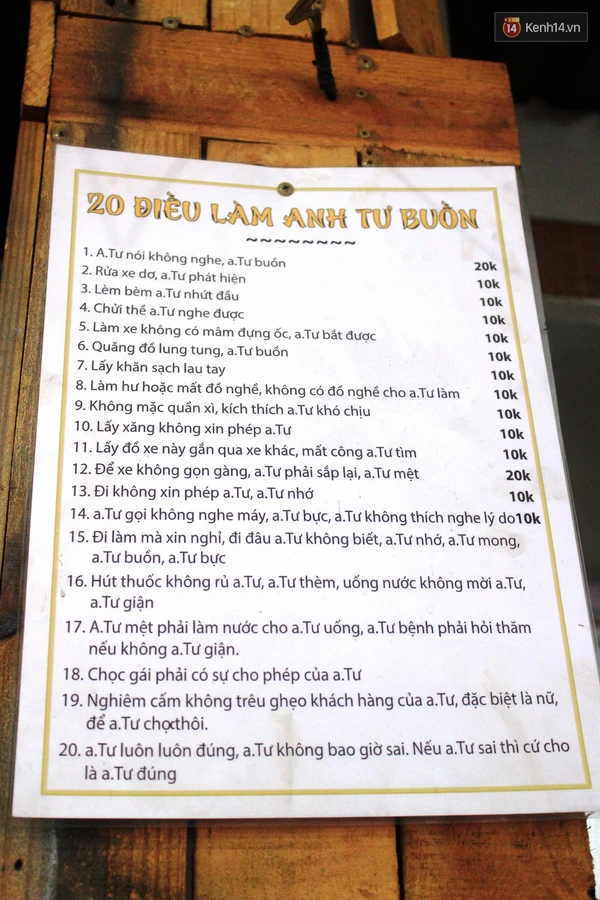 14 Kenh14.vn
20 ĐIỀU LÀM ANH TƯ BUỒN
~~~~~~~~
1. A.Tư nói không nghe, a.Tư buồn 20k
2. Rửa xe dơ, a.Tư phát hiện 10k
3. Lèm bèm a.Tư nhứt đầu 10k
4. Chửi thề a.Tư nghe được 10k
5. Làm xe không có mâm đựng ốc, a.Tư bắt được 10k
6. Quăng đồ lung tung, a.Tư buồn 10k
7. Lấy khăn sạch lau tay 10k
8. Làm hư hoặc mất đồ nghề, không có đồ nghề cho a.Tư làm 10k
9. Không mặc quần xì, kích thích a.Tư khó chịu 10k
10. Lấy xăng không xin phép a.Tư 10k
11. Lấy đồ xe này gắn qua xe khác, mất công a.Tư tìm 10k
12. Để xe không gọn gàng, a.Tư phải sắp lại, a.Tư mệt 20k
13. Đi không xin phép a.Tư, a.Tư nhớ 10k
14. a.Tư gọi không nghe máy, a.Tư bực, a.Tư không thích nghe lý do10k
15. Đi làm mà xin nghỉ, đi đâu a.Tư không biết, a.Tư nhớ, a.Tư mong,
a.Tư buồn, a.Tư bực
16. Hút thuốc không rủ a.Tư, a.Tư thèm, uống nước không mời a.Tư,
a.Tư giận
17. A.Tư mệt phải làm nước cho a.Tư uống, a.Tư bệnh phải hỏi thăm
nếu không a.Tư giận.
18. Chọc gái phải có sự cho phép của a.Tư
19. Nghiêm cấm không trêu ghẹo khách hàng của a.Tư, đặc biệt là nữ,
để a.Tư chọcthôi.
20. a.Tư luôn luôn đúng, a.Tư không bao giờ sai. Nếu a.Tư sai thì cứ cho
là a.Tư đúng